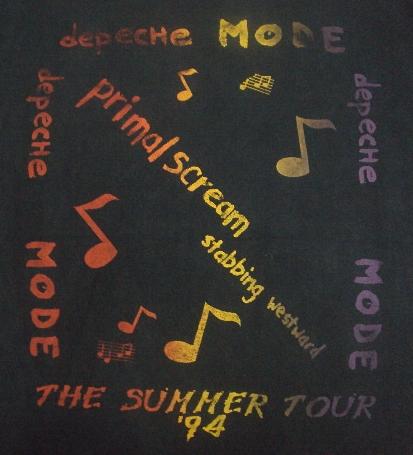 depecHe MODE
depecHe MODE
primal scream
stabbing westward
depecHe MODE
THE SUMMER TOUR
'94